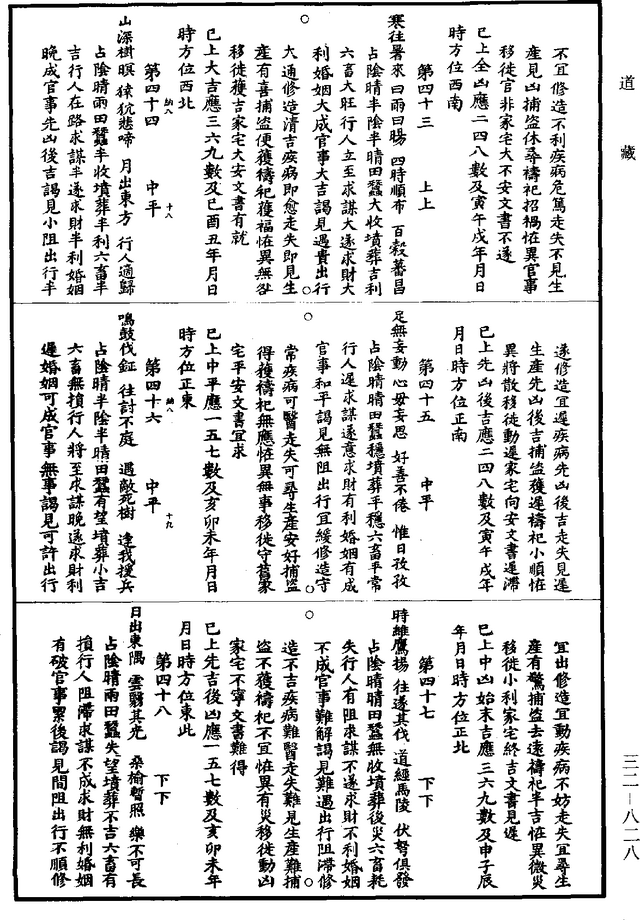 道藏
不宜修造不利疾病危篤走失不見生
產見凶捕盜休尋禱祀招禍怪異官事
移徙官非家宅大不安文書不遂
已上全凶應二四八數及寅午戌年月日
時方位西南
第四十三　上上
寒往暑來　曰雨曰暘　四時順布　百穀蕃昌
占陰晴半陰半晴田蠶大收墳葬吉利
六畜大旺行人立至求謀大遂求財大
利婚姻大成官事大吉謁見遇貴出行
大通修造清吉疾病即愈走失即見生
產有喜捕盜便獲禱祀獲福怪異無咎
移徙獲吉家宅大安文書有就
已上大吉應三六九數及巳酉丑年月日
時方位西北
第四十四　中平
納八　十八
山深樹暝　猿狖悲啼　月出東方　行人適歸
占陰晴雨田蠶半收墳葬半利六畜半
吉行人在路求謀半遂求財半利婚姻
晚成官事先凶後吉謁見小阻出行半
遂修造宜遲疾病先凶後吉走失見遲
生產先凶後吉捕盜獲遲禱祀小順怪
異將散移徙動遲家宅向安文書遲滯
已上先凶後吉應二四八數及寅午戌年
月日時方位正南
第四十五　中平
足無妄動　心毋妄思　好善不倦　惟日孜孜
占陰晴晴田蠶穩墳葬平穩六畜平常
行人遲求謀遂意求財有利婚姻有成
官事和平謁見無阻出行宜緩修造守
常疾病可醫走失可尋生產安好捕盜
得獲禱祀無應怪異無事移徙守舊家
宅平安文書宜求
已上中平應一五七數及亥卯未年月日
時方位正東
第四十六　中平
納八　十九
鳴鼓伐鉦　往討不庭　遇敵死樹　逢我援兵
占陰晴半陰半晴田蠶有望墳葬小吉
六畜無損行人將至求謀晚遂求財利
遲婚姻可成官事無事謁見可許出行
宜出修造宜動疾病不妨走失宜尋生
產有驚捕盜去遠禱祀半吉怪異微災
移徙小利家宅終吉文書見遲
已上中凶始末吉應三六九數及申子辰
年月日時方位正北
第四十七　下下
時維鷹揚　往遂其伐　道經馬陵　伏弩俱發
占陰晴晴田蠶無收墳葬後災六畜耗
失行人有阻求謀不遂求財不利婚姻
不成官事難解謁見難遇出行阻滯修
造不吉疾病難醫走失難見生產難捕
盜不獲禱祀不宜怪異有災移徙動凶
家宅不寧文書難得
已上先吉後凶應一五七數及亥卯未年
月日時方位東北
第四十八　下下
日出東隅　雲翳其光　桑榆暫照　樂不可長
占陰晴雨田蠶失望墳葬不吉六畜有
損行人阻滯求謀不成求財無利婚姻
有破官事累後謁見間阻出行不順修
三二—八二八